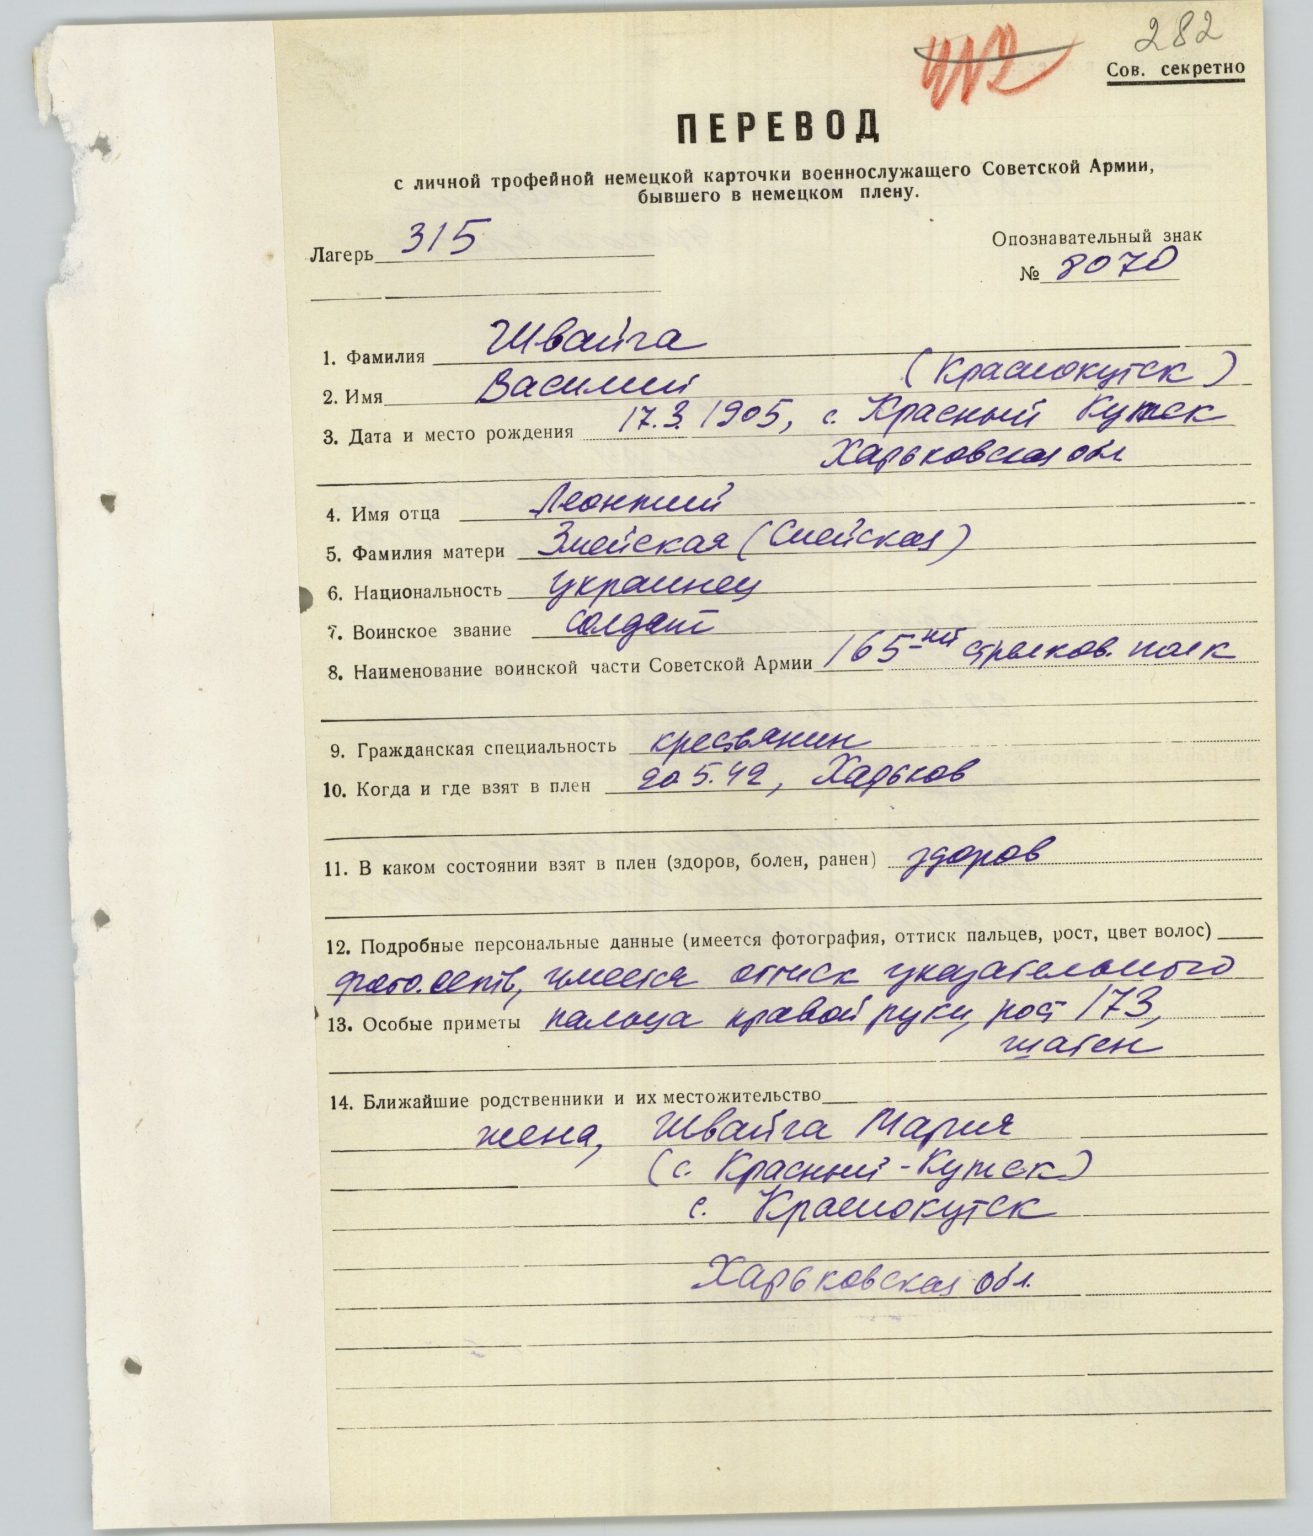 282
Сов. секретно
ПЕРЕВОД
с личной трофейной немецкой карточки военнослужащего Советской Армии,
бывшего в немецком плену.
Лагерь 315
Опознавательный знак
№ 8070
1. Фамилия Швайга
2. Имя Василий (Краснокутск)
3. Дата и место рождения 17.3.1905, с. Красный Кутск
Харьковская обл
4. Имя отца Леонтий
5. Фамилия матери Змейская (Смейская)
6. Национальность украинец
7. Воинское звание солдат
8. Наименование воинской части Советской Армии 165-ый стрелков. полк
9. Гражданская специальность крестьянин
10. Когда и где взят в плен 20.5.42, Харьков
11. В каком состоянии взят в плен (здоров, болен, ранен) здоров
12. Подробные персональные данные (имеется фотография, оттиск пальцев, рост, цвет волос)
имеется оттиск указательного
13. Особые приметы пальца правой руки, рост 173,
шатен
14. Ближайшие родственники и их местожительство
жена, Швайга Мария
(с. Красный-Кутск)
с. Краснокутск
Харьковская обл.